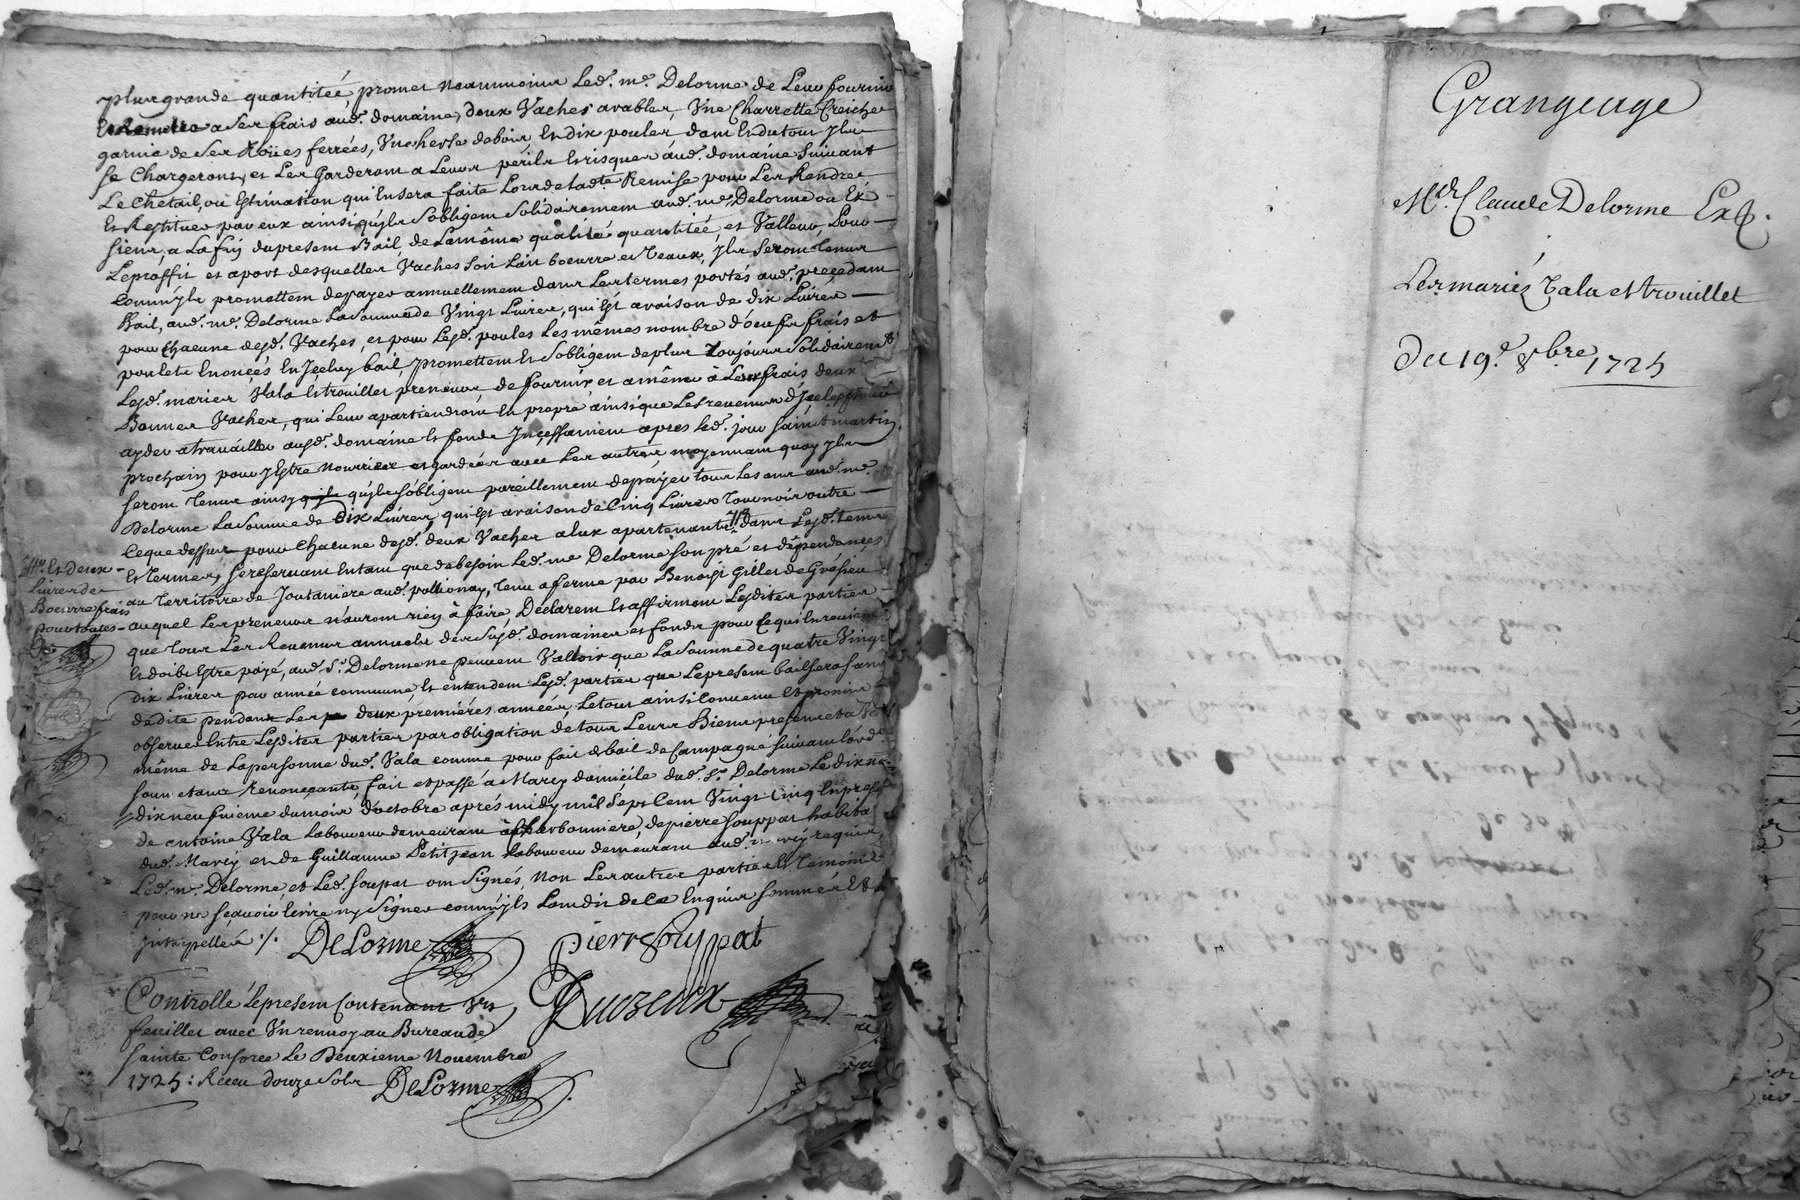 plus grande quantitée, promet neaumoins led. me. Delorme de Leur fournir
a Ses frais aud. domaine, deux Vaches arables, Une Charrette Creiche
garnie de Ses Roües ferrées, Une herse de bois Et dix poules dont Et du tout Jls
se Chargeront, et Les Garderont a Leurs périls et risques aud. domaine Suivant
Le Chetail, ou Estimation qui En sera faite Lors de lade. Remise pour Les Rendre
Et Restituer par eux ainsi quils S'obligent Solidairement aud. me. Delorme ou Es
siens, a La fin du present Bail, de La même qualité quantitée, et Valleur, Pour
Le proffit et aport desquelles Vaches Soit Lait boeurre et Veaux, Jls Seront tenus
Comm'jls promettent de payer annuellement dans Les termes portés aud. precedant
Bail, aud. me. Delorme La Somme de Vingt Livres, qui Est a raison de dix Livres
pour Chacune desd. Vaches, et pour Lesd. poules Les mêmes nombre d'oeufs frais et
poulets Enoncés En Jceluy bail, promettent Et s'obligent de plus toujours Solidairemt
Lesd. mariés Vala Et trouillet preneurs de fournir et amêner à Leurs frais deux
Bonnes Vaches, qui Leur apartiendront En propre ainsi que Les revenus d'Jcelles
ayder a travailler ausd. domaine Et fonds Jncessamment apres led. jour saint martin
prochain pour y Estre nourries et gardées avec Les autres moyennant quoy Jls
seront tenus ainsy quils s'obligent pareillement de payer tous Les ans aud. me.
Delorme La Somme de Dix Livres, qui Est a raison de Cinq Livres tournois outre
Ce que dessus pour Chacune desd. deux Vaches a Eux apartenantes dans Lesd. tems
Et termes, se reservant En tant que de besoin Led. me Delorme Son pré et dépendances
au territoire de Joutaniere aud. pollionay, tenu a ferme par Benoist Gillet de Grésieu
auquel Les preneurs n'auront rien à faire, Déclarent Et affirment Lesdites parties
que tous Les Revenus annuels des Susd. domaines et fonds pour Ce qui En revient
Et doibt Estre payé, aud. Sr. Delorme ne peuvent Valloir que La Somme de quatre Vingt
dix Livres par année commune, Et entendent Lesd. parties que Le present bail sera sans
dédite pendant Les deux premiéres années, Le tout ainsi Convenu Et promis
observer Entre Lesdites parties par obligation de tous Leurs Biens presents &
même de La personne dud. Vala comme pour fait de bail de Campagne suivant l'ord
soum et aux Renonceante, fait et passé à Marcy domicile dud. Sr. Delorme Le dixne
dix neufvieme du mois d'octobre aprés midy mil Sept Cent Vingt Cinq En prese
de antoine Vala Laboureur demeurant à Charbonniere, de pierre Souppat habita
dud. Marcy et de Guillaume Petitjean Laboureur demeurant aud. requis
Led. me Delorme et Led. Soupat ont Signés, Non Les autres parties Et Temoins
pour ne sçavoir écrire ny Signer comm'jls L'ont dit de ce Enquis sommés Et
Jnterpellés ./.
Et deux
Livres de
Boeurre frais
pour toutes
DeLorme
Pierr Souppat
Duozeux
Controllé Le present Contenant Un
feuillet avec Un renvoy au Bureau de
Sainte Consorce Le Deuxieme Novembre
1725: Receu douze Sols DeLorme
Grangeage
Me. Claude Delorme Ex
Les mariés Vala et trouillet
du 19e. 8bre 1725